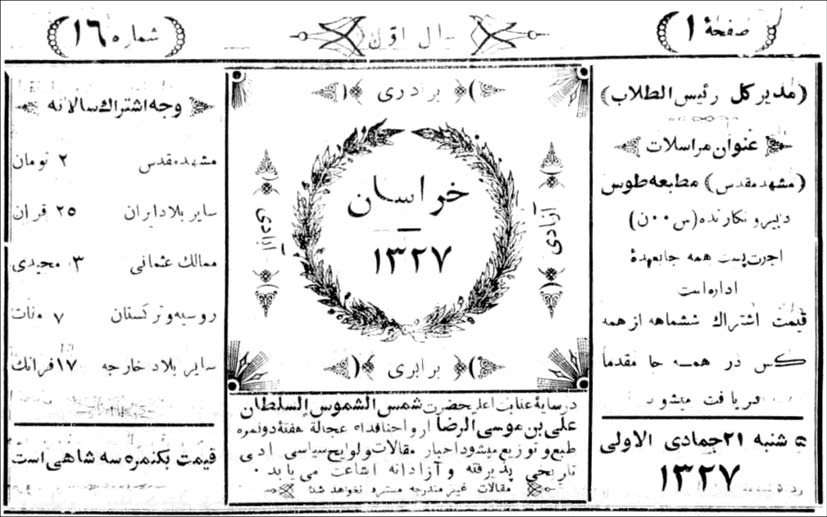 صفحهٔ ۱
سال اوّل
شماره ۱۶
(مدیر کل رئیس الطلاب)
عنوان مراسلات
(مشهد مقدس) مطبعه طوس
دبیر و نگارنده (س ۰۰ ن)
اجرت پست همه جا بعهدهٔ
اداره است
قیمت اشتراک ششماهه از همه
کس در همه جا مقدما
دریافت میشود
۵ شنبه ۲۱ جمادی الاولی
۱۳۲۷
برادری
آزادی
خراسان
۱۳۲۷
آزادی
برابری
در سایهٔ عنایت اعلیحضرت شمس الشموس السلطان
علی بن موسی الرضا ارواحنا فداه عجالة هفتهٔ دو نمره
طبع و توزیع میشود اخبار مقالات و لوایح سیاسی ادبی
تاریخی پذیرفته و آزادانه اشاعت می یابد ۰
مقالات غیر مندرجه مسترد نخواهد شد
وجه اشتراک سالانه
مشهد مقدس ۲ تومان
سایر بلاد ایران ۲۵ قران
ممالک عثمانی ۳ مجیدی
روسیه و ترکستان ۷ منات
سایر بلاد خارجه ۱۷ فرانک
قیمت یکنمره سه شاهی است